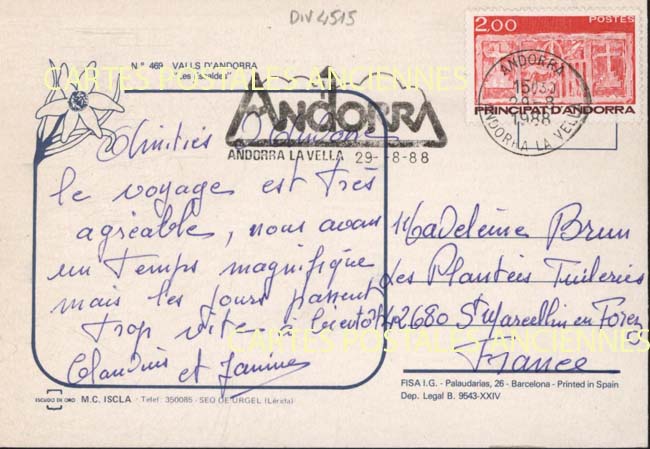 DIV 4515
Nº 469 VALLS D'ANDORRA
CARTES POSTALES ANCIENNES
2.00 POSTES
PRINCIPAT D'ANDORRA
ANDORRA
15H30
29-8
1988
ANDORRA LA VELLA
ANDORRA
ANDORRA LA VELLA 29-8-88
Amitiés
le voyage est très
agréable, nous avons
un temps magnifique
mais les jours passent
trop vite à bientôt
Claudius et Janine
Madeleine Brun
Les Plantées Tuileries
42680 St Marcellin en Forez
France
CARTES POSTALES ANCIENNES
FISA I.G. - Palaudarias, 26 - Barcelona - Printed in Spain
Dep. Legal B. 9543-XXIV
ESCUDO DE ORO M.C. ISCLA - Telef: 350085 - SEO DE URGEL (Lérida)